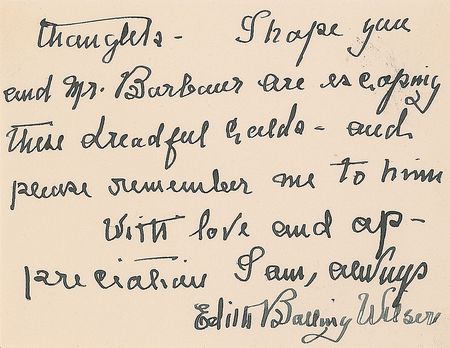 thoughts - I hope you
and Mr. Barbour are escaping
these dreadful colds - and
please remember me to him
With love and ap-
preciation I am, always
Edith Bolling Wilson